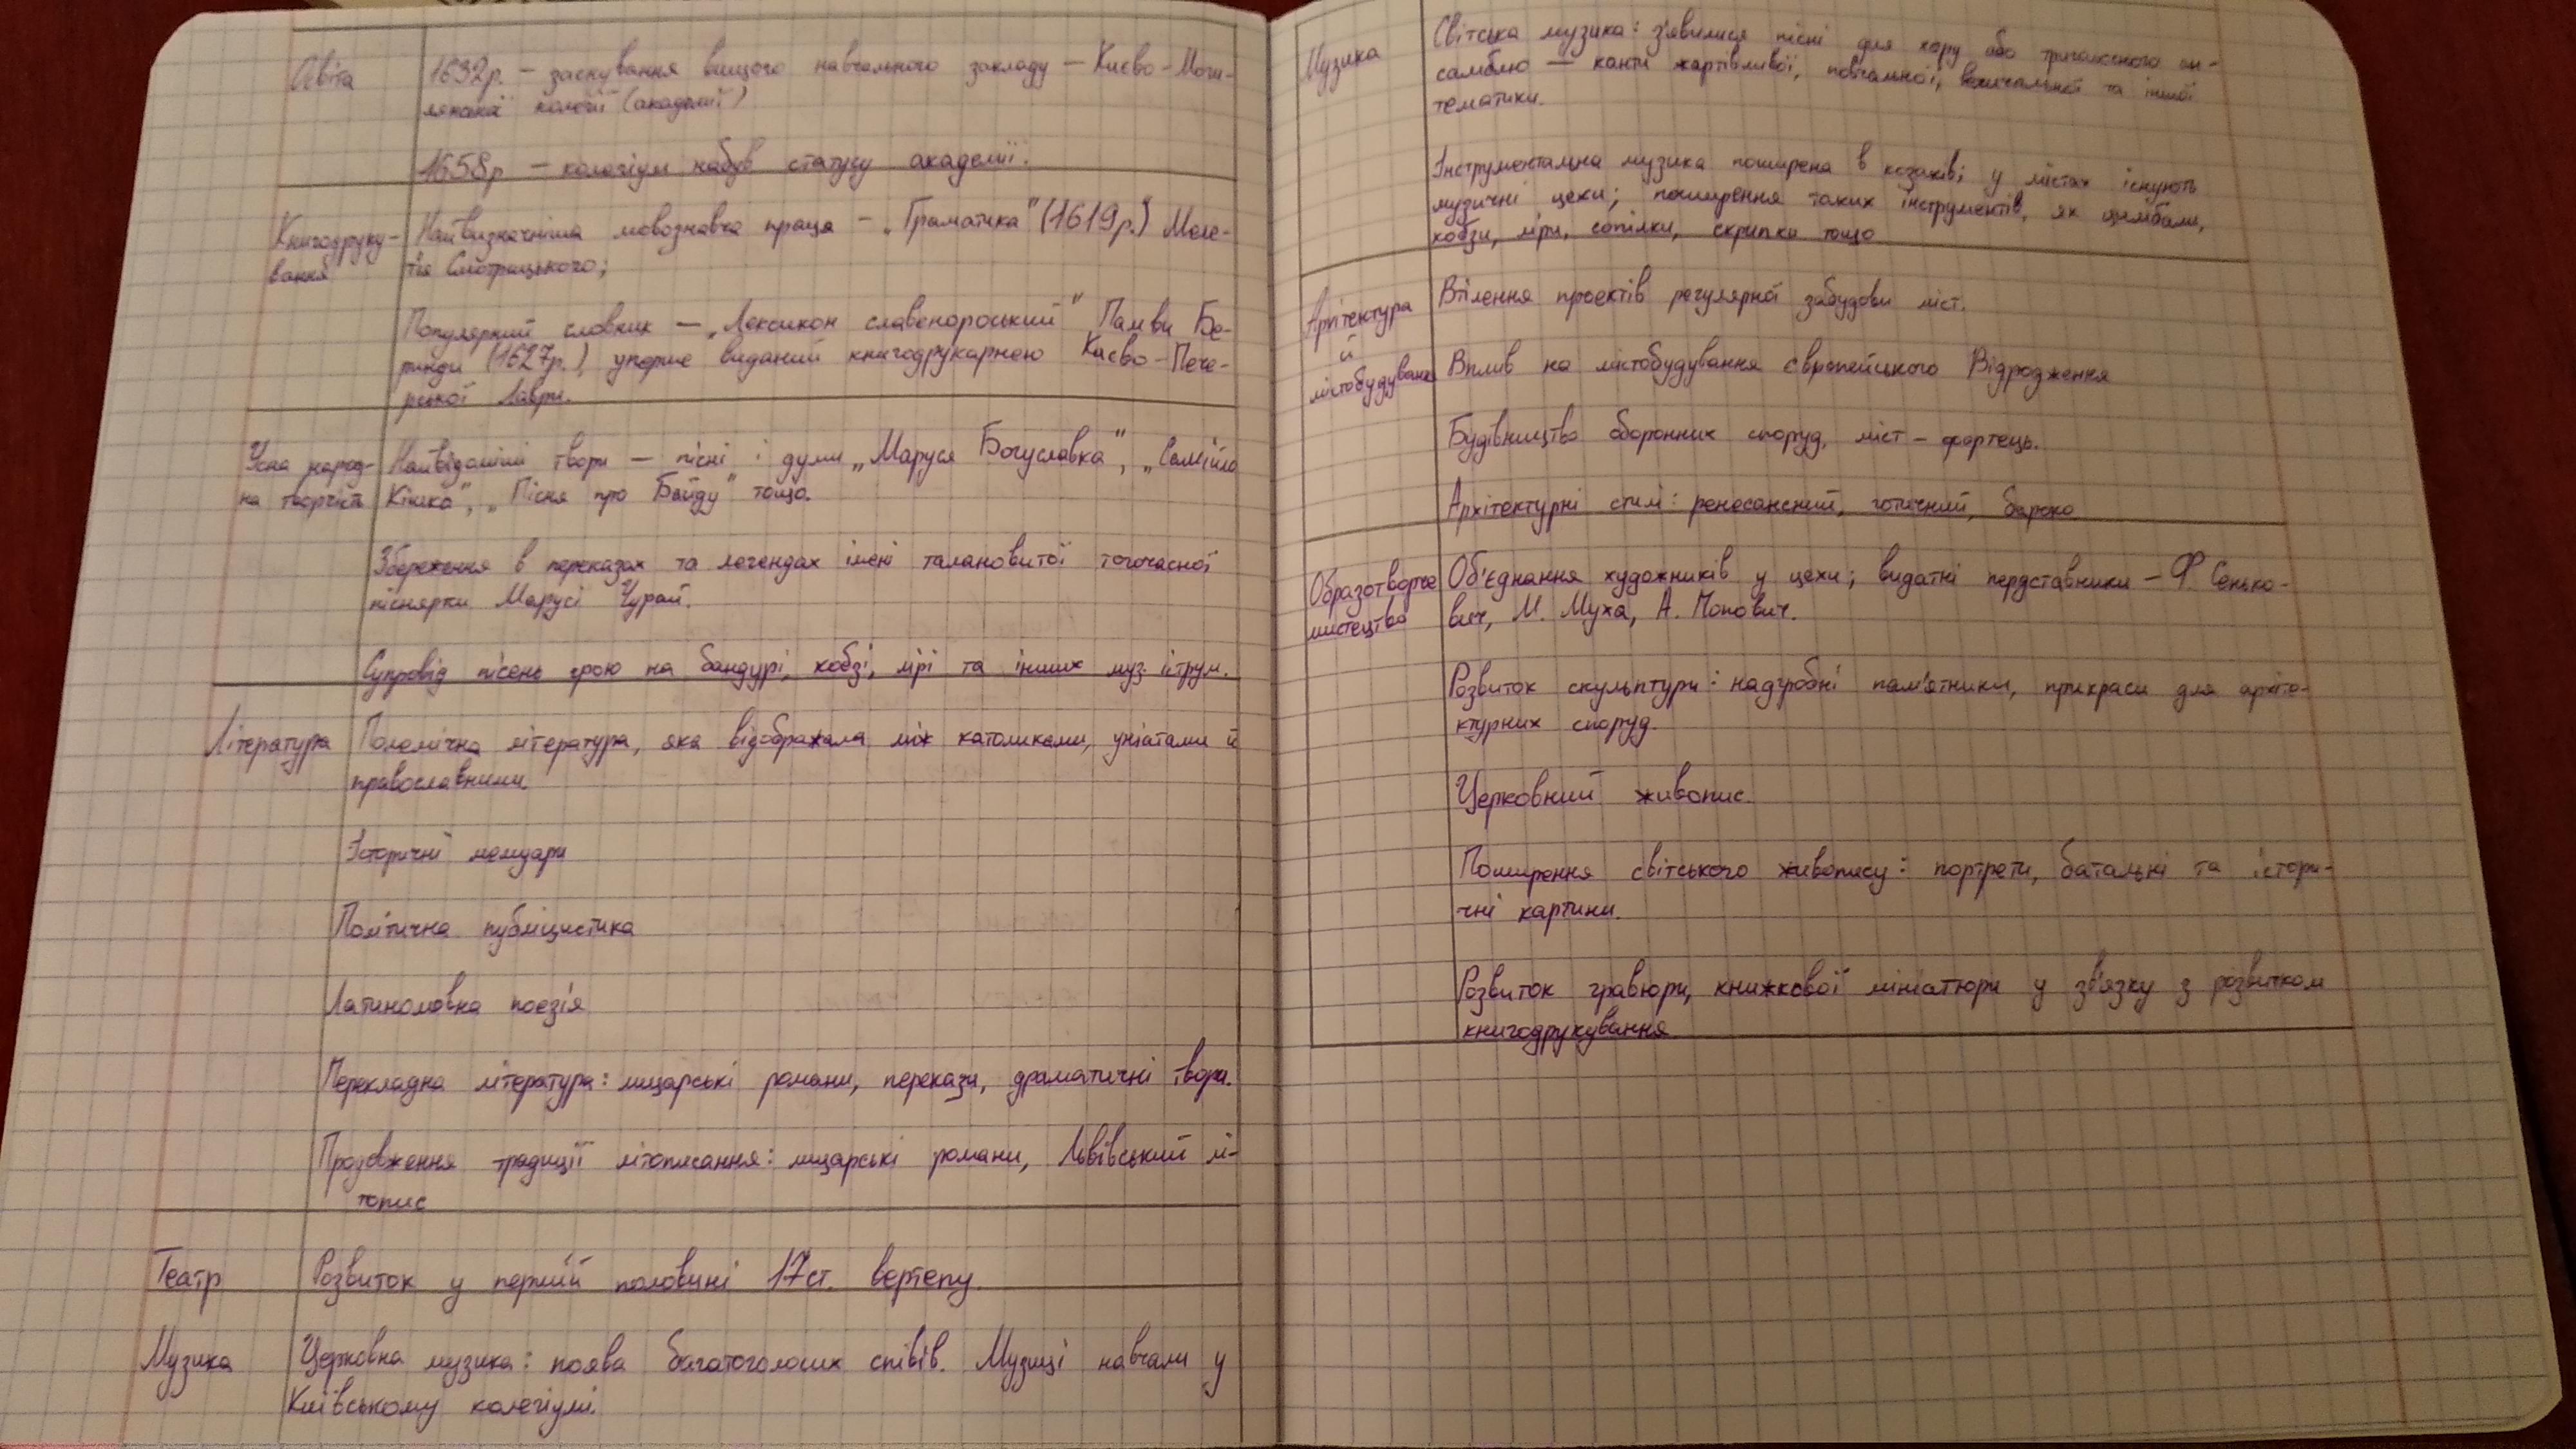 Освіта 1632р. – заснування вищого навчального закладу – Києво-Моги-
лянської колегії (академії)
1658р – колегіум набув статусу академії.
Книгодруку- Найвизначніша мовознавча праця – „Граматика" (1619р.) Меле-
вання тія Смотрицького;
Популярний словник – „Лексикон славенороський" Памви Бе-
ринди (1627р.), уперше виданий книгодрукарнею Києво-Пече-
рської Лаври.
Усна народ- Найвідоміші твори – пісні і думи „Маруся Богуславка", „Самійло
на творчість Кішка", „Пісня про Байду" тощо.
Збереження в переказах та легендах імені талановитої тогочасної
піснярки Марусі Чурай.
Супровід пісень грою на бандурі, кобзі, лірі та інших муз. іструм.
Література Полемічна література, яка відображала між католиками, уніатами й
православними
Історичні мемуари
Політична публіцистика
Латиномовна поезія
Перекладна література: лицарські романи, перекази, драматичні твори.
Продовження традиції літописання: лицарські романи, Львівський лі-
топис
Театр Розвиток у першій половині 17ст. вертепу.
Музика Церковна музика: поява багатоголосих співів. Музиці навчали у
Київському колегіумі.
Музика Світська музика: з'явилися пісні для хору або триголосного ан-
самблю – канти жартівливої, повчальної, величальної та іншої
тематики.
Інструментальна музика поширена в козаків; у містах існують
музичні цехи; поширення таких інструментів, як цимбали,
кобзи, ліри, сопілки, скрипка тощо
Архітектура Втілення проектів регулярної забудови міст.
й
містобудуван Вплив на містобудування європейського Відродження
Будівництво оборонних споруд, міст-фортець.
Архітектурні стилі: ренесансний, готичний, бароко
Образотворче Об'єднання художників у цехи; видатні пердставники – Ф. Сенько-
мистецтво вич, М. Муха, А. Попович.
Розвиток скульптури: надгробні пам'ятники, прикраси для архіте-
ктурних споруд.
Церковний живопис.
Поширення світського живопису: портрети, батальні та істори-
чні картини.
Розвиток гравюри, книжкової мініатюри у зв'язку з розвитком
книгодрукування